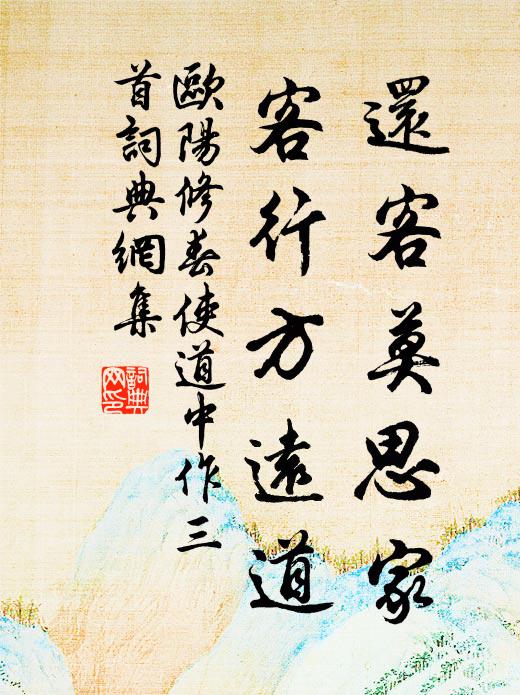 還客莫思家
客行方遠道
歐陽修奉使道中作三
首詞典網集
詞典
网印